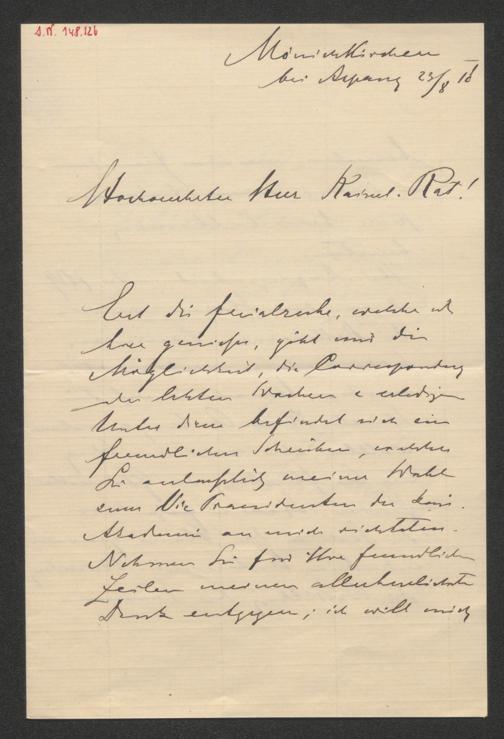 S.N. 148.126
Mönichkirchen
bei Aspang 23/8
Hochverehrter Herr Kaiserl. Rat!
Erst die Ferialruhe, welche ich
hier genieße, gibt mir die
Möglichkeit, die Correspondenz
der letzten Wochen zu erledigen.
Unter dieser befindet sich ein
freundliches Schreiben, welches
Sie anlässlich meiner Wahl
zum Vice Praesidenten der kais.
Akademie an mich richteten.
Nehmen Sie für Ihre freundlichen
Zeilen meinen allerherzlichsten
Dank entgegen; ich will mich